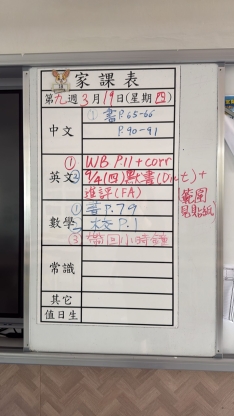 家課表
第九週3月19日(星期四)
中文
① 書P.65-66
P.90-91
英文
① WB P.11 + corr
② 9/4(四)默書(Dict) +
進評(FA)
(範圍
見貼紙)
數學
① 書P.79
② P.1
③ 帶回小時鐘
常識
其它
值日生